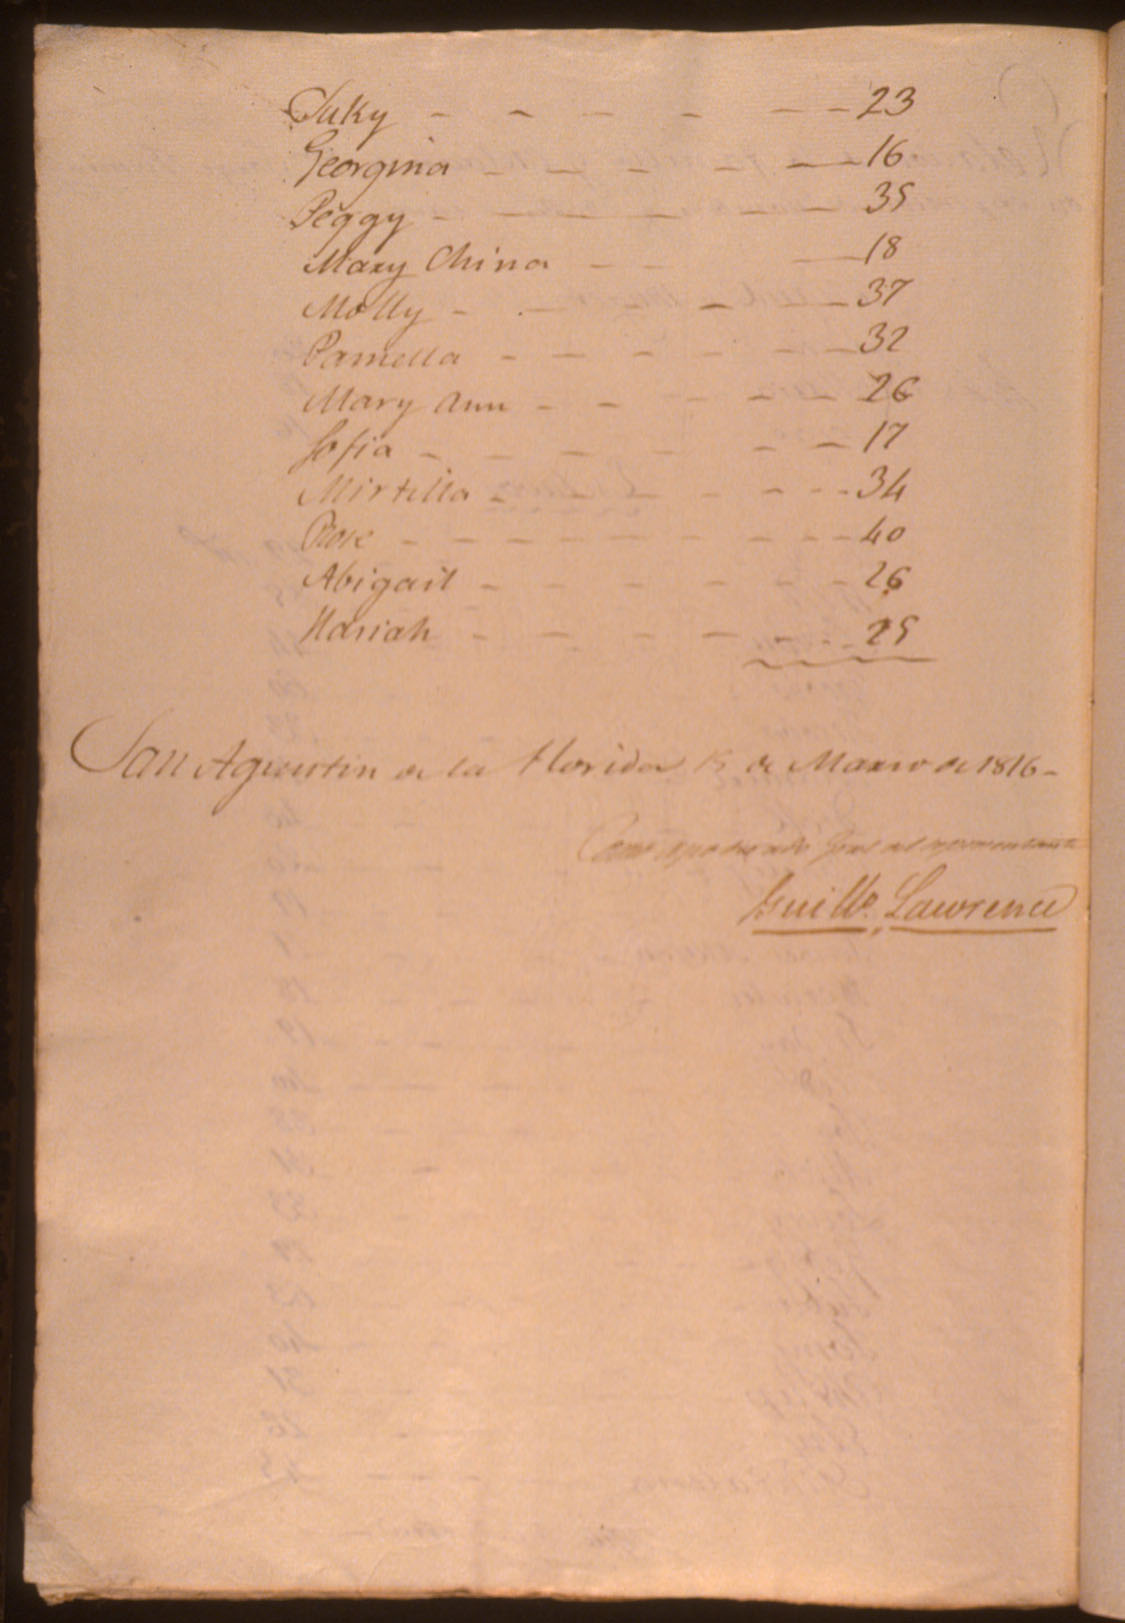 Suky - - - - - - 23
Georgina - - - - - 16
Peggy - - - - - - 35
Mary China - - - 18
Molly - - - - - 37
Pamella - - - - - - 32
Mary Ann - - - - - 26
Sofia - - - - - - 17
Mirtilla - - - - - - 34
Rose - - - - - - - - - 40
Abigail - - - - - - 26
Hariah - - - - - - 25
San Agustin de la Florida 15 de Marzo de 1816-
Como apoderado Gral del
Guillo. Lawrence